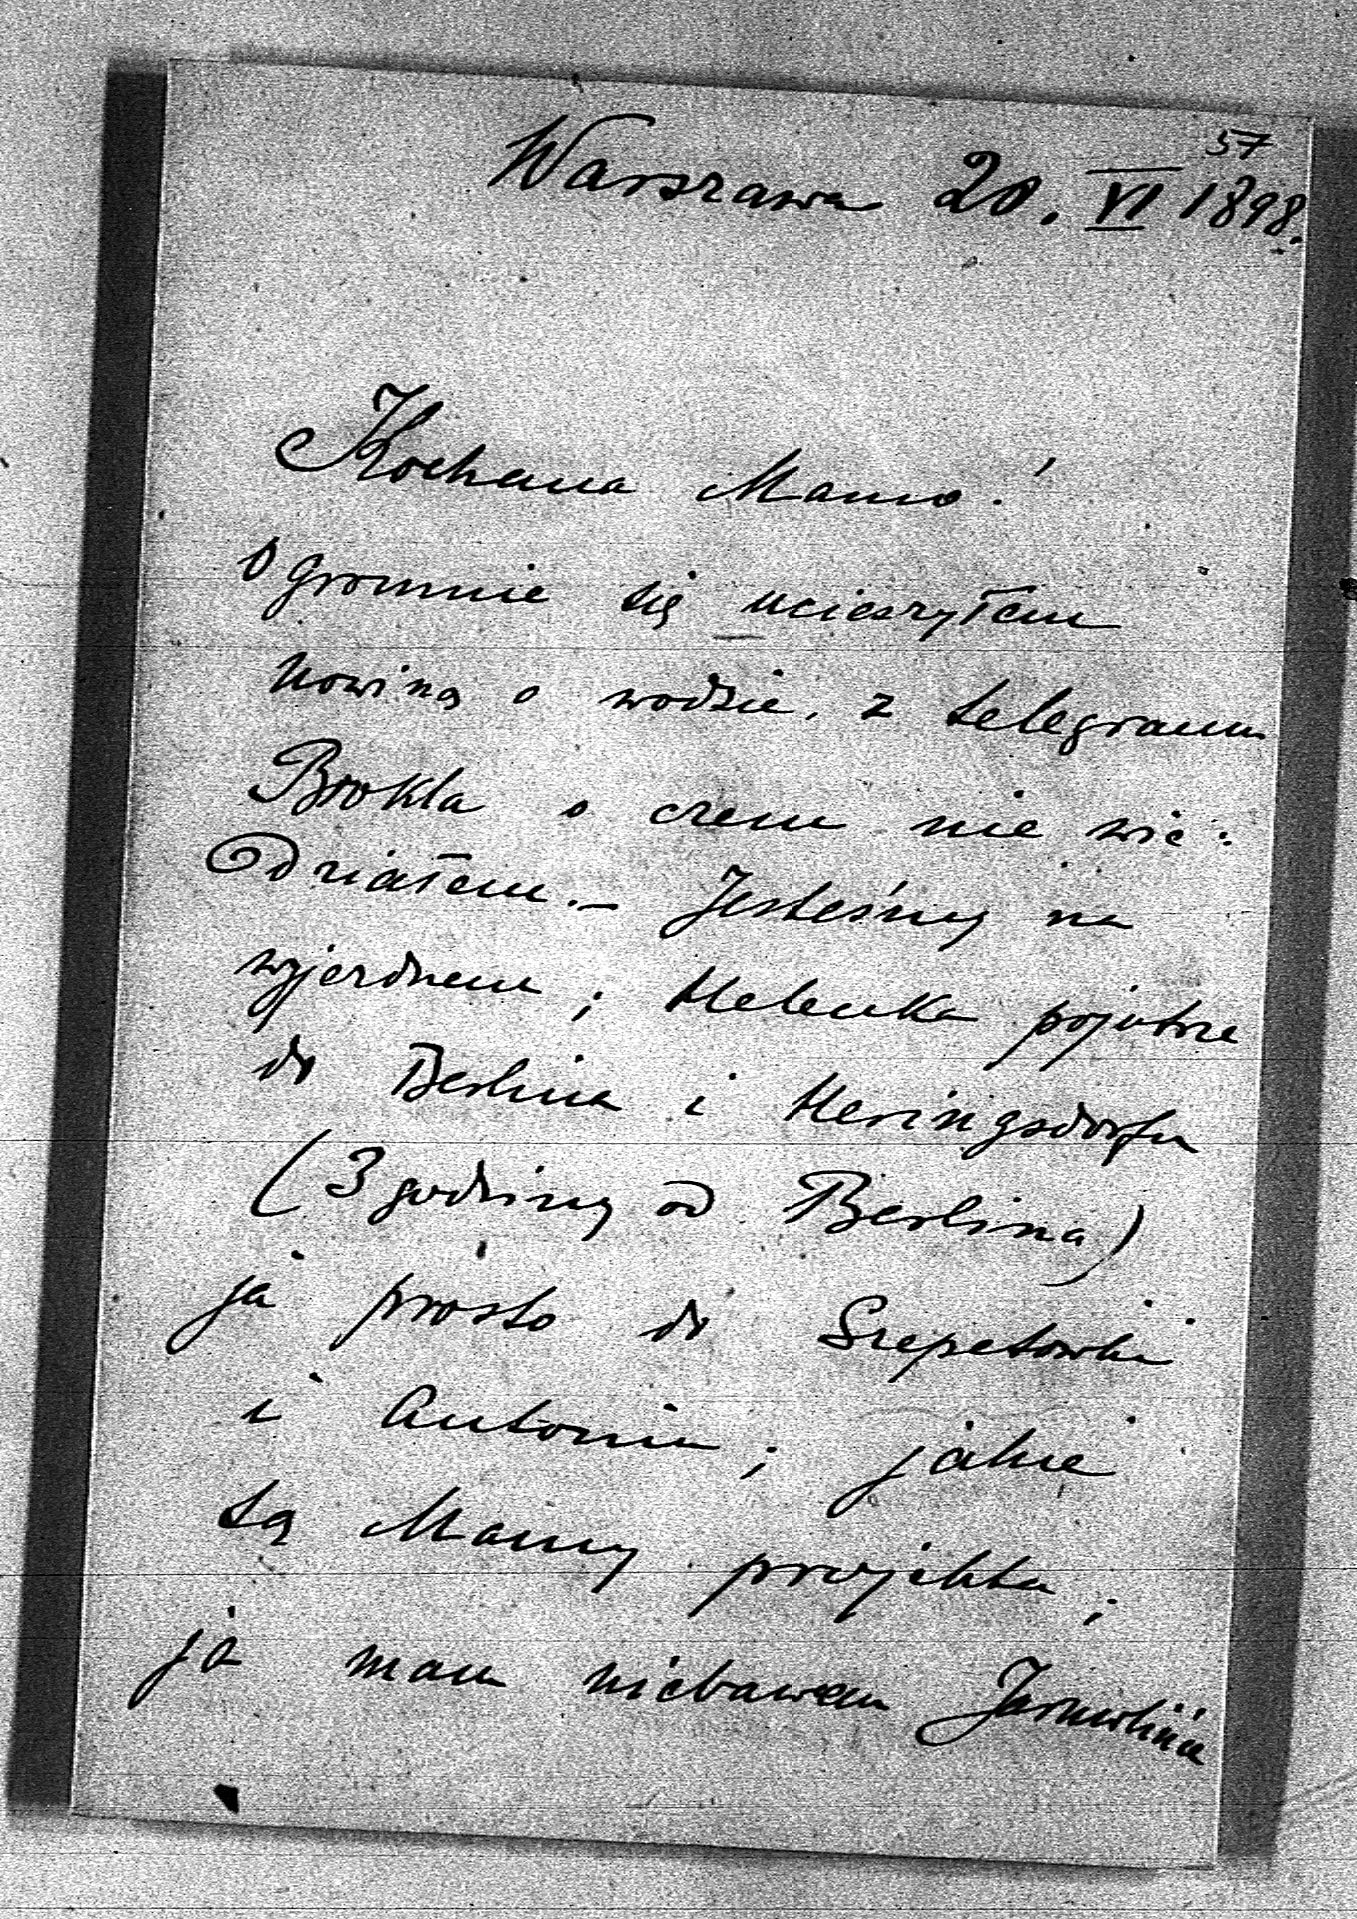 57
Warszawa 20. VI 1898.
Kochana Mamo!
Ogromnie się ucieszyłem
nowiną o wodzie, z telegramu
Brokla o czem nie wie:
działem. — Jesteśmy na
wyjezdnem; Helenka pojutrze
do Berlina i Heringsdorfu
(3 godziny od Berlina)
ja prosto do Szepetówki
i Antonin; jakie
są Mamy projekta;
ja mam niebawem